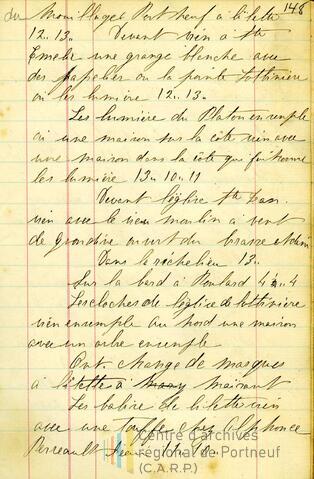 148
du Mouillage Portneuf à l'ilette
12. 13. Devant vien à Ste
Emelie une grange blanche avec
des ou la pointe lotbinière
ou les lumière 12. 13.
Les lumière du Platon ensemble
ci une maison sur la côte vien avec
une maison dans la côte qui
les lumière 13 - 10 - 11
Devant l'église Dam.
vien avec le vieu moulin à vent
de grondine ouvert du et demi
Dans le richelieu 12 -
Sur la bord à Poulard 4½ . 4
Les cloches de l'église de lotbinière
vien ensemple au nord une maison
avec un arbre ensemple
Ont. change de marques
à l'ilette à
Les de l'ilette vien
avec une touffe chez Alphonce
Perreault 11 - 10 -
Centre d'archives
régional de Portneuf
(C.A.R.P.)